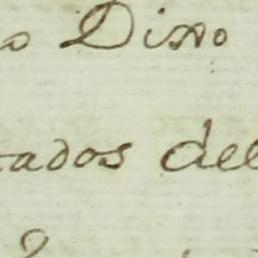 o Dixo
tados del